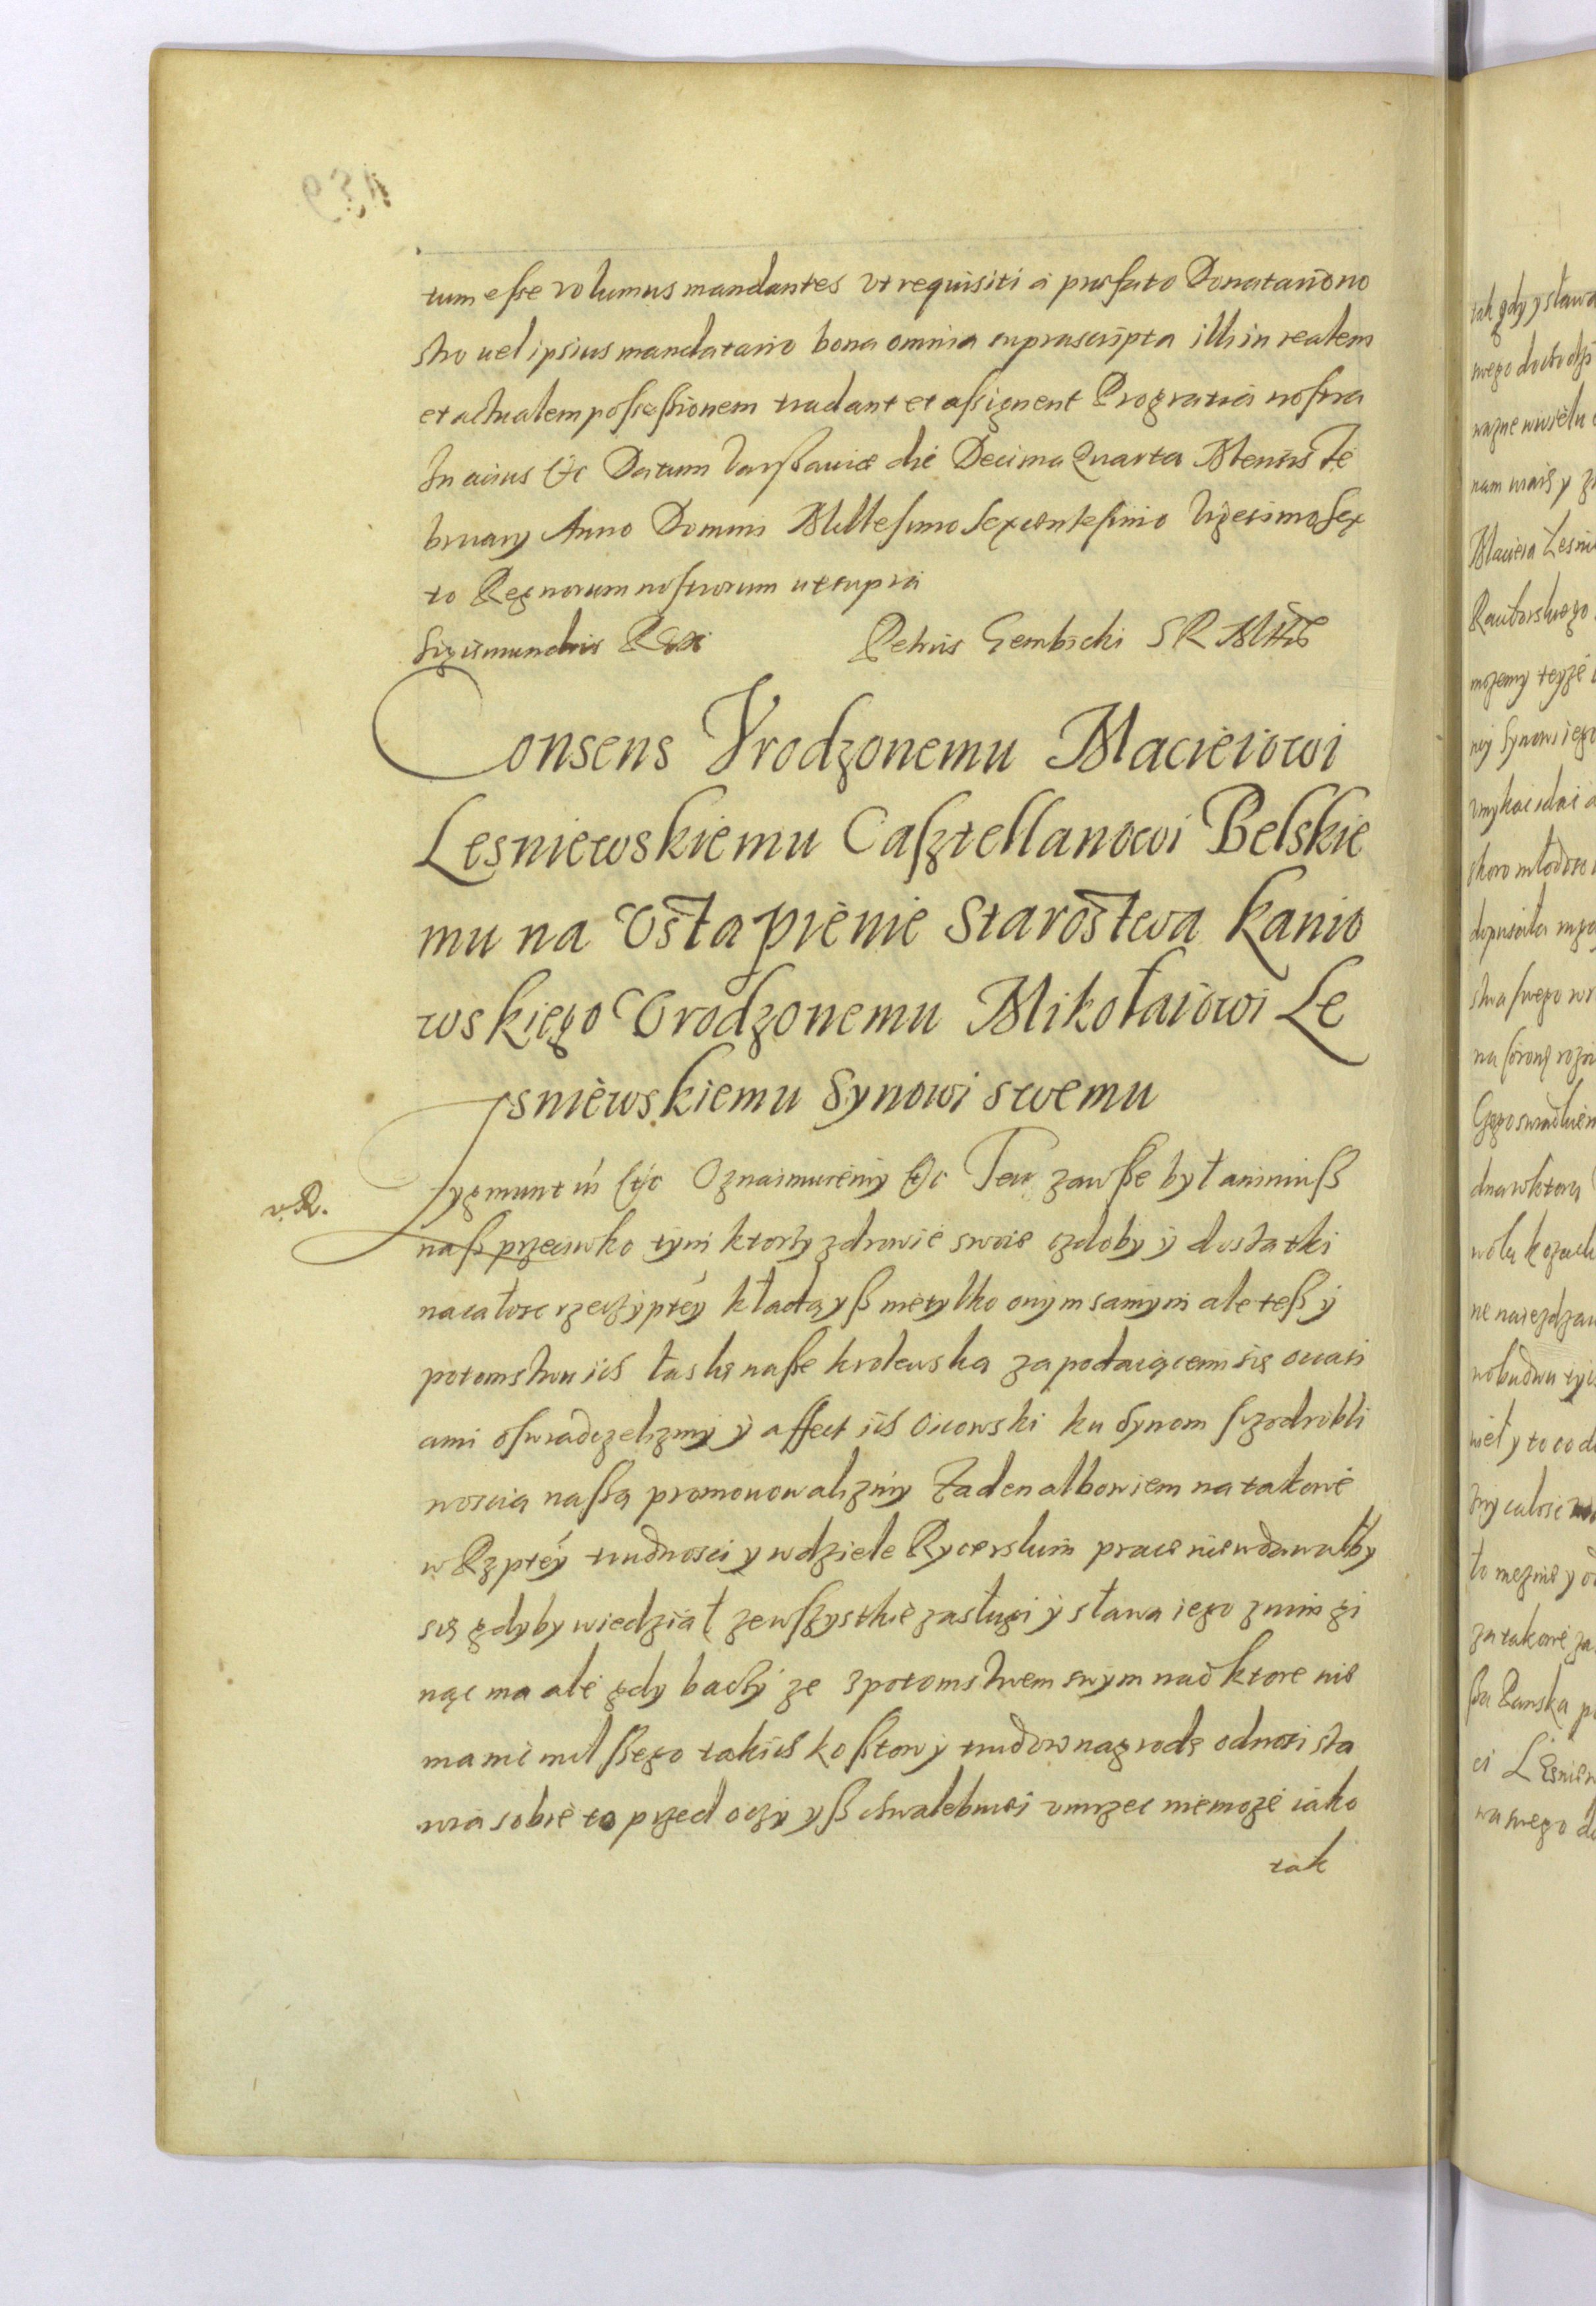 tum esse volumus mandantes vt requisiti à præfato Donatario no
stro uel ipsius mandatario bona omnia suprascripta illi in realem
et actualem possessionem tradant et assignent Pro gratia nostra
In cuius etc Datum Varssauiæ die Decima Quarta Mensis Fe
bruary Anno Domini Millesimo Sexcentesimo Vigesimo Sex
to Regnorum nostrorum ut supra
Sigismundus Rex Petrus Gembicki SR
Consens Vrodzonemu Macieiowi
Lesniewskiemu Casztellanowi Belskie
mu na Vstapienie Starostwa Kanio
wskiego Vrodzonemu Mikołaiowi Le
sniewskiemu Synowi swemu
v. R.
Zygmunt III etc Oznaimuiemy etc Ten zawsse był animuss
nass przeciwko tym ktorzy zdrowie swoie ozdoby y dostatki
na całosc rzeczyptey kładą yss nie tylko onym samym ale tess y
potomstwu ich łaskę nasse krolewską za podaiącemi się occasi
ami oswiadczelizmy y affect ich Oicowski ku Synom sczodrobli
woscią nassą promowowalizmy Żaden albowiem na takowe
w Rzptey trudnosci y w dziele Rycerskim prace nie wdawałby
się gdyby wiedział ze wszystkie zasługi y sława iego z nim zgi
nąc ma ale gdy baczy ze z potomstwem swym nad ktore nie
ma nic milssego takich kosztow y trudow nagrodę odnosi sta
wia sobie to przed oczy yss chwalebniei umrzec nie moze iako
tak